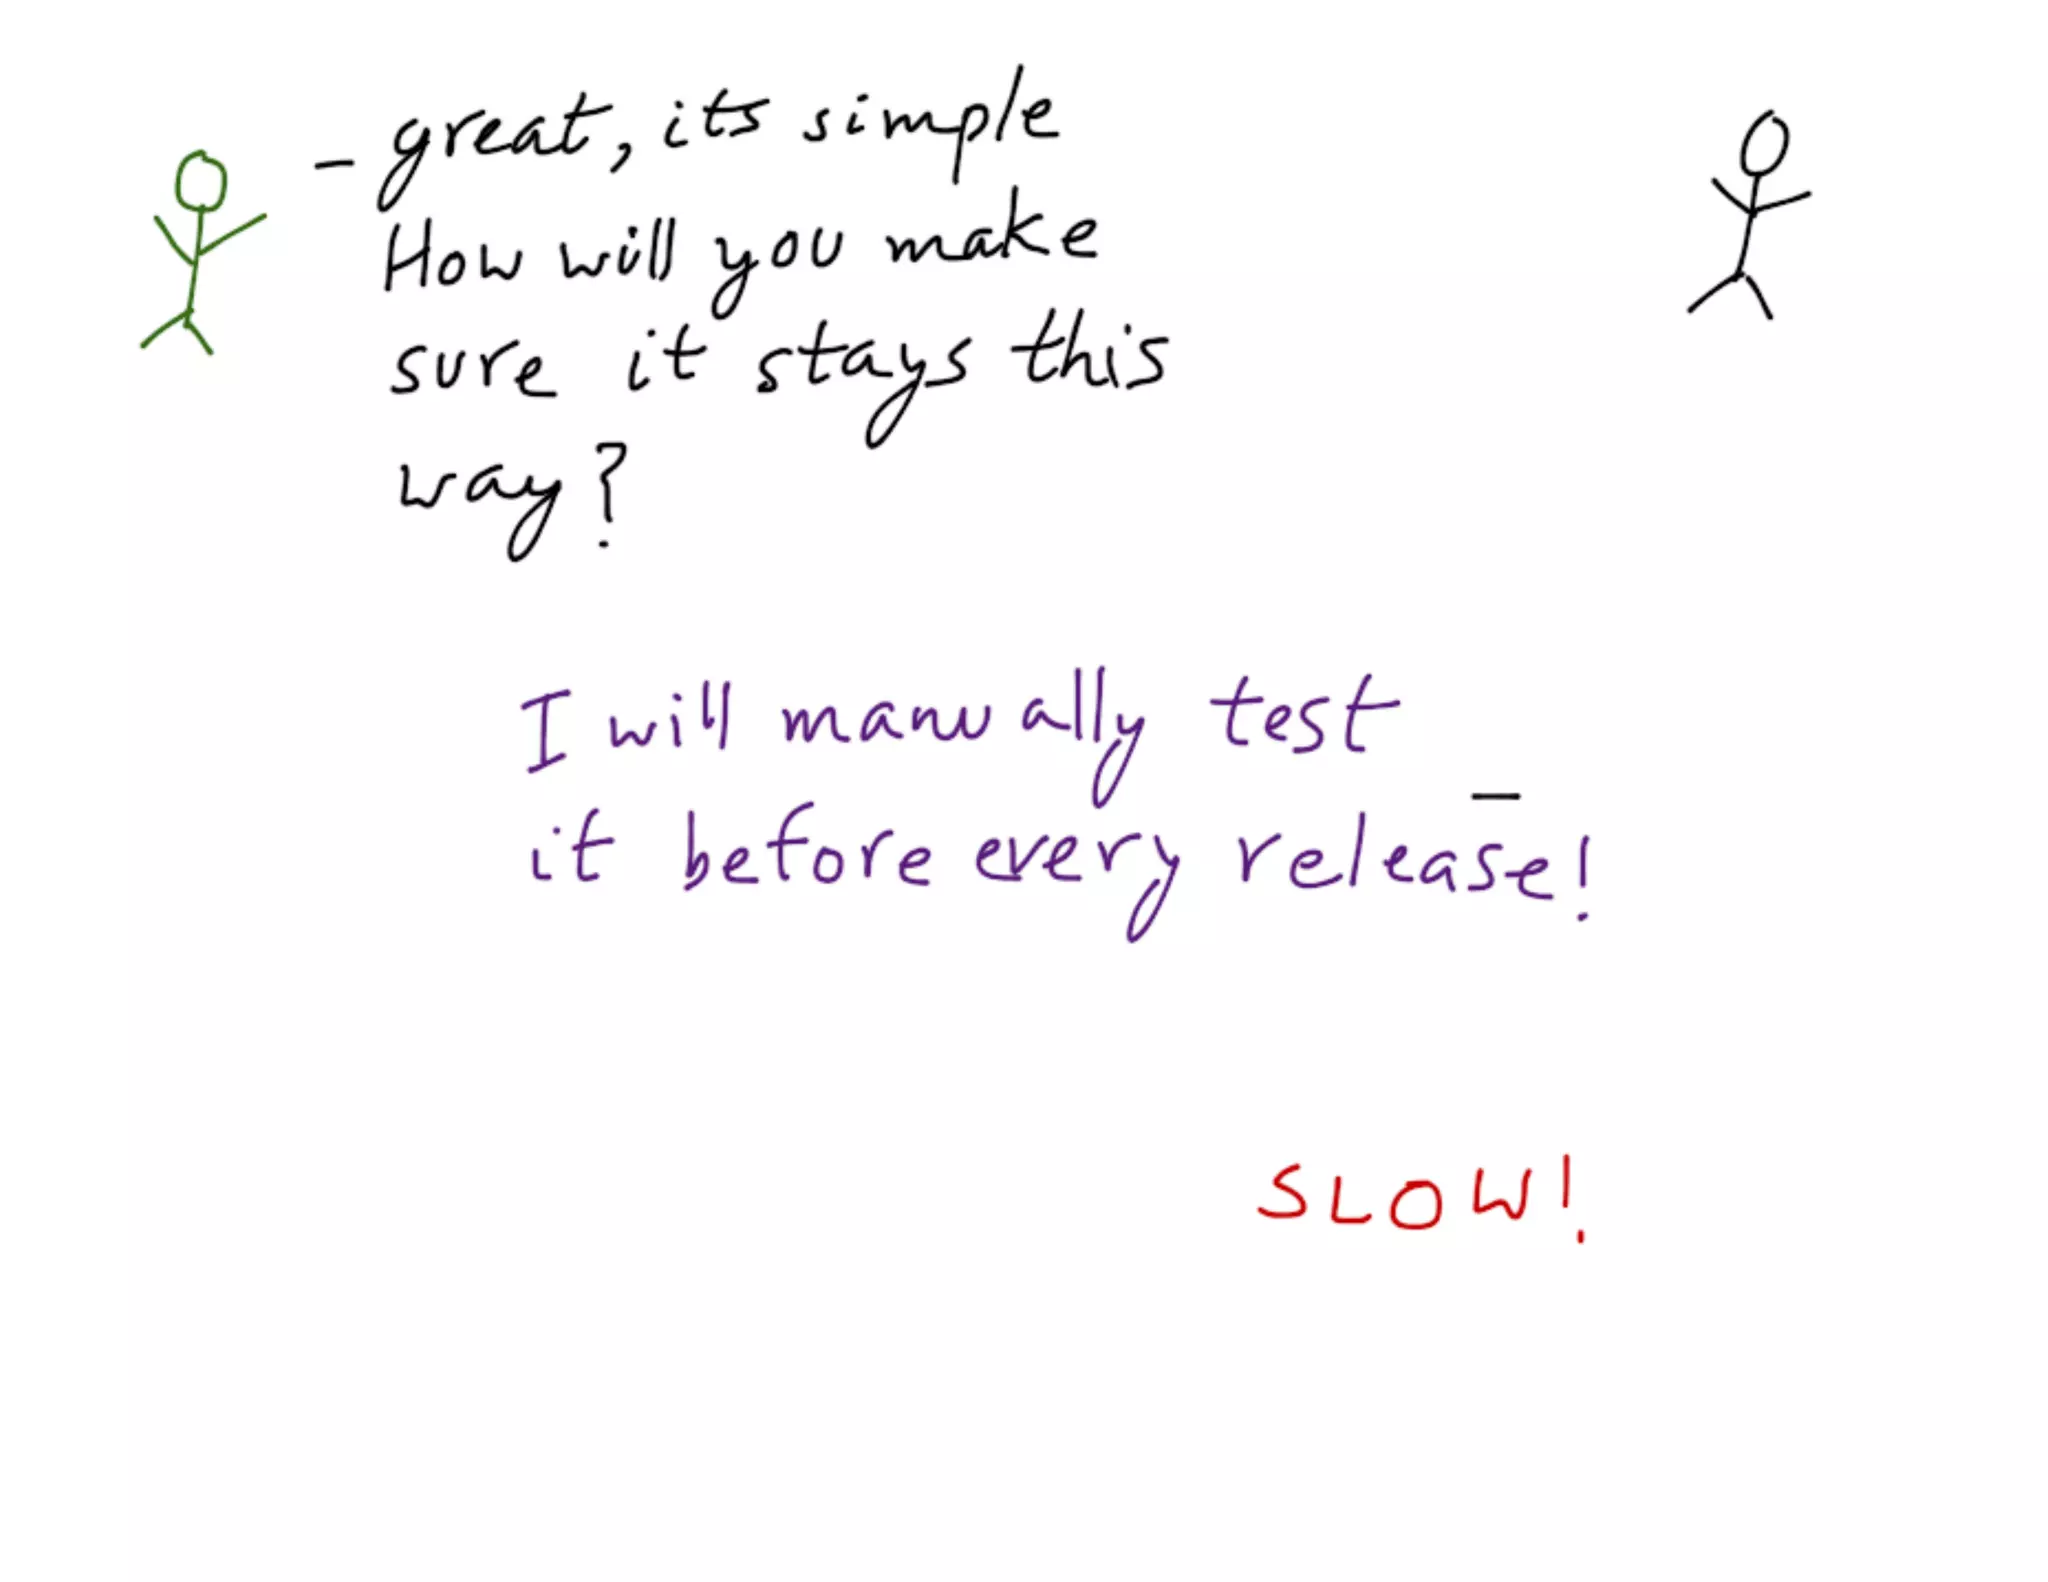 - great, its simple
How will you make
sure it stays this
way?
I will manually test
it before every release!
SLOW!